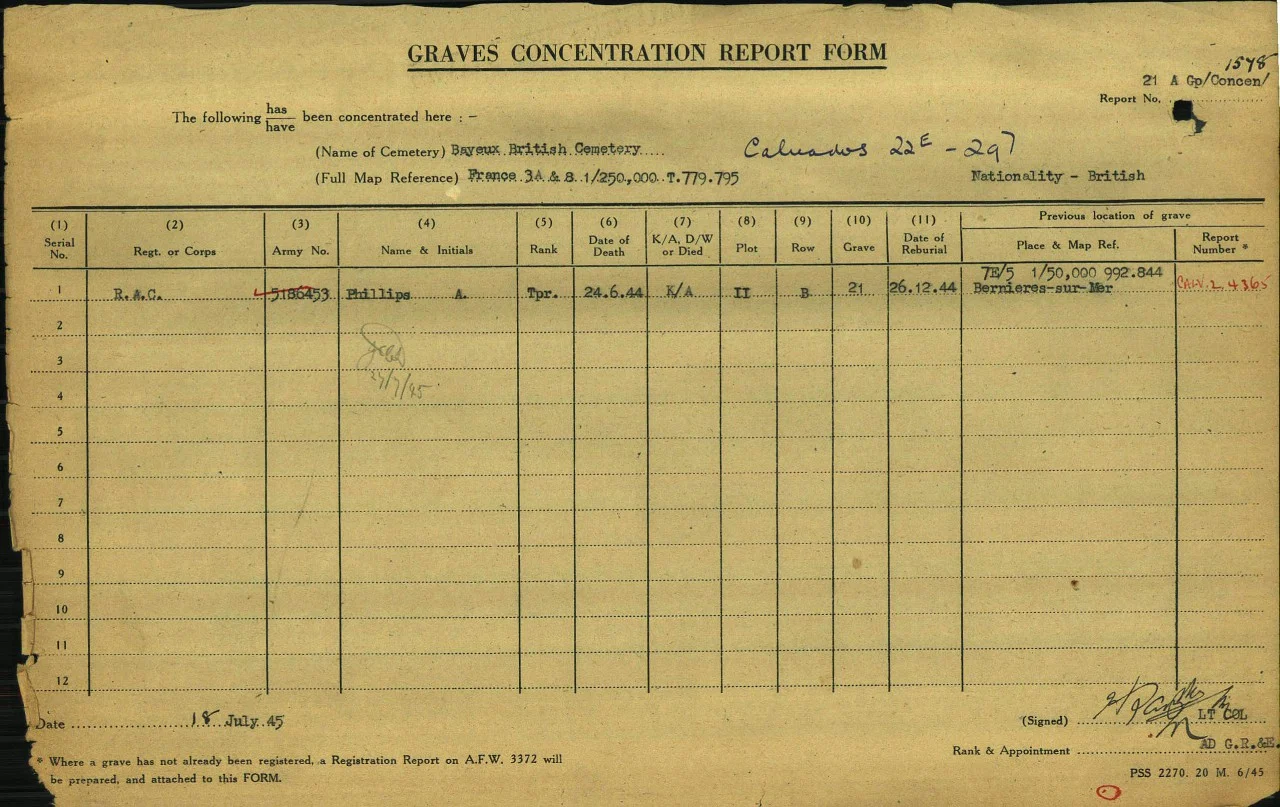 GRAVES CONCENTRATION REPORT FORM
1578
21 A Gp/Concen/
Report No.
The following has/have been concentrated here : —
(Name of Cemetery) Bayeux British Cemetery
Calvados 22E - 297
(Full Map Reference) France 3A & 8 1/250,000 T.779.795
Nationality - British
(1) Serial No. (2) Regt. or Corps (3) Army No. (4) Name & Initials (5) Rank (6) Date of Death (7) K/A, D/W or Died (8) Plot (9) Row (10) Grave (11) Date of Reburial Previous location of grave Place & Map Ref. Report Number *
7E/5 1/50,000 992.844
1 R.A.C. 5186453 Phillips A. Tpr. 24.6.44 K/A II B 21 26.12.44 Bernieres-sur-Mer CALV. 2 4365
2
3
4
5
6
7
8
9
10
11
12
Date 18 July 45
(Signed) LT COL
Rank & Appointment AD G.R.&E.
* Where a grave has not already been registered, a Registration Report on A.F.W. 3372 will
be prepared, and attached to this FORM.
PSS 2270. 20 M. 6/45